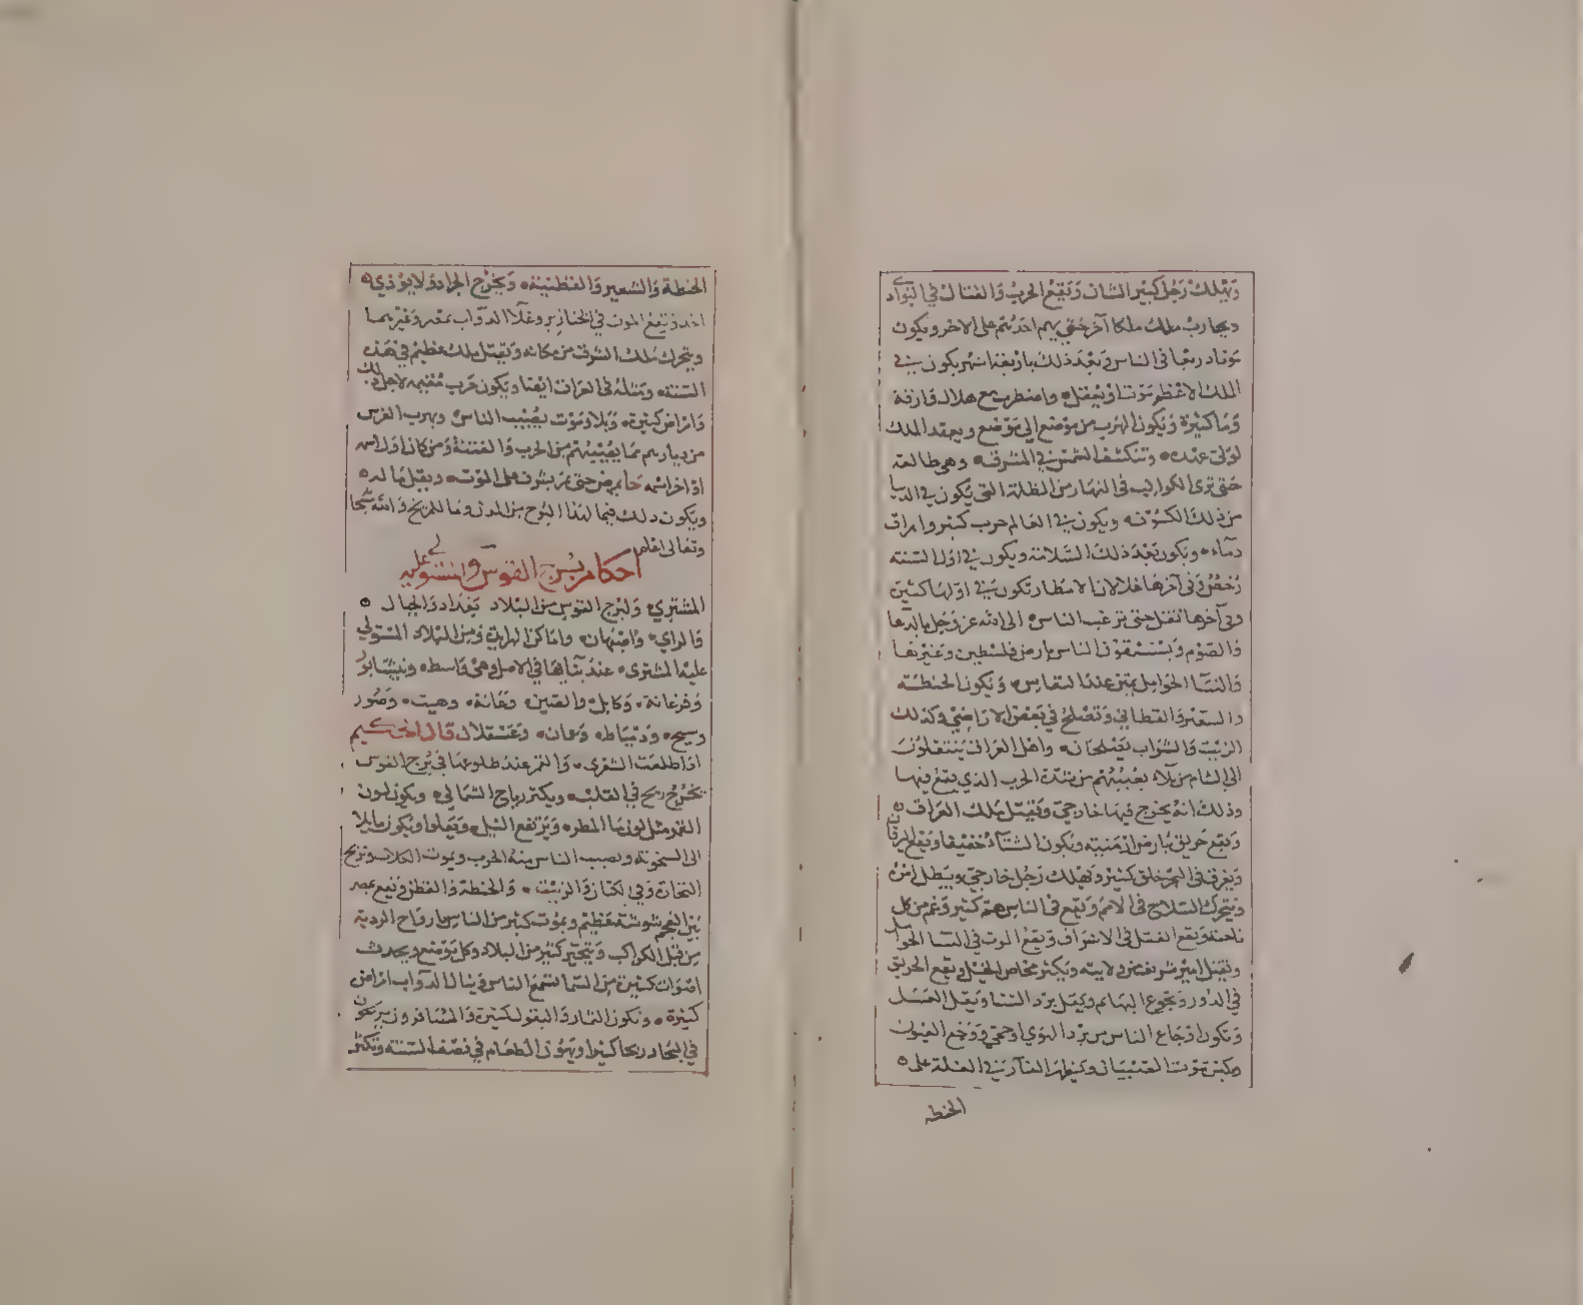 ويهلك رجل كبير الشان ويقع الحرب والقتال في البوادي
ويحارب ملك ملكا آخر حتى يهم احدهم على الاخر ويكون
في الناس وبعد ذلك باربعة اشهر يكون في
الملك الاعظم موتا او يقتل واضطرب مع هلال وارقة
دما كثيرة ويكون الهرب من موضع الى موضع ويعقد الملك
عنده وتنكسف الشمس في المشرقة وهي طالعة
حتى ترى الكواكب في النهار من الظلمة التي يكون في الدنيا
من ذلك الكسوف ويكون في العالم حرب كبير واهراق
دماء ويكون بعد ذلك السلامة ويكون في اول السنة
رخص وفي آخرها غلا لان الامطار تكون في اولها كثير
وفي آخرها تقل حتى يرغب الناس الى الله عز وجل بالدعا
والصوم ويستسقون الناس بارض فلسطين وغيرها
والنسا الحوامل يمتن عند النفاس ويكون الحنطة
والشعير والقطاني وتصلح في بعض الاراضي وكذلك
الزيت والشراب يصلحان واهل العراق ينتقلون
الى الشام من بلاء يصيبهم من شدة الحرب الذي يقع فيها
وذلك انه يخرج فيها خارجي ويقتل ملك العراق
ويقع حريق بارض ارمنية ويكون الشتاء خفيفا ويقع اليرقان
ويغرق في البحر خلق كثير ويهلك رجل خارجي ويبطل امره
ويتحرك السلاح في الامم ويقع في الناس هم كثير وغم من كل
ناحية ويقع القتل في الاشراف ويقع الموت في النسا الحوامل
وينتقل امير شريف من ولايته ويكثر مخاض الخيل ويقع الحريق
في الدور وتجوع البهايم ويقل برد الشتا ويقل العسل
وتكون اوجاع الناس من برد الهوى او حمى ووجع العيون
ويكثر موت الصبيان ويظهر الفار في الغلة على
الحنطة
الحنطة والشعير والقطنية ويخرج الجراد ولا يؤذي
احد ويقع الموت في الخنازير وغلا الدواب بمصر وغيرها
ويتحرك ملك الشرق من مكانه ويقتل ملك عظيم في هذه
السنة ومثله في العراق ايضا ويكون حرب عظيمه لاجل ذلك
وامراض كثيرة وبلاء وموت يصيب الناس ويهرب الفرس
من ديارهم مما يصيبهم من الحرب والفتنة ومن كان اول اسمه
او اخر اسمه حا يمرض حتى يشرف على الموت ويقل ماله
ويكون ذلك فيما لهذا البرج من المدن وما للمريخ والله سبحانه
وتعالى اعلم
احكام برج القوس والمستولي عليه
المشتري ولبرج القوس من البلاد بغداد والجبال
والراي واصبهان واماكن الهرابذة ومن البلاد المستولي
عليه المشترى عند بنايها في الاصل وهي واسط ونيشابور
وفرغانة وكابل والصين وهيت وصور
وسيح ودمياط وعمان وعسقلان قال الحكيم
اذا طلعت الشعرى والقمر عند طلوعها في برج القوس
يخرج ريح في القلب ويكثر رياح الشمالي ويكون لون
القمر مثل لون ما المطر ويرتفع النيل ويعلوا ويكون مايلا
الى السخونة ويصيب الناس منه الحرب ويموت الكلاب وتربح
التجارة وفي الكتان والزيت والحنطة والقطن ويقع بمصر
بين العجم شوشة عظيم ويموت كثير من الناس بارواح الردية
من قبل الكواكب ويتحير كثير من البلاد وكل موضع ويحدث
اصوات كثيرة من السما تسمع الناس وينال الدواب امراض
كثيرة وتكون الثمار والبقول كثيرة والمسافرون يربحون
في البحار ربحا كبيرا ويهون الطعام في نصف السنة وتكثر